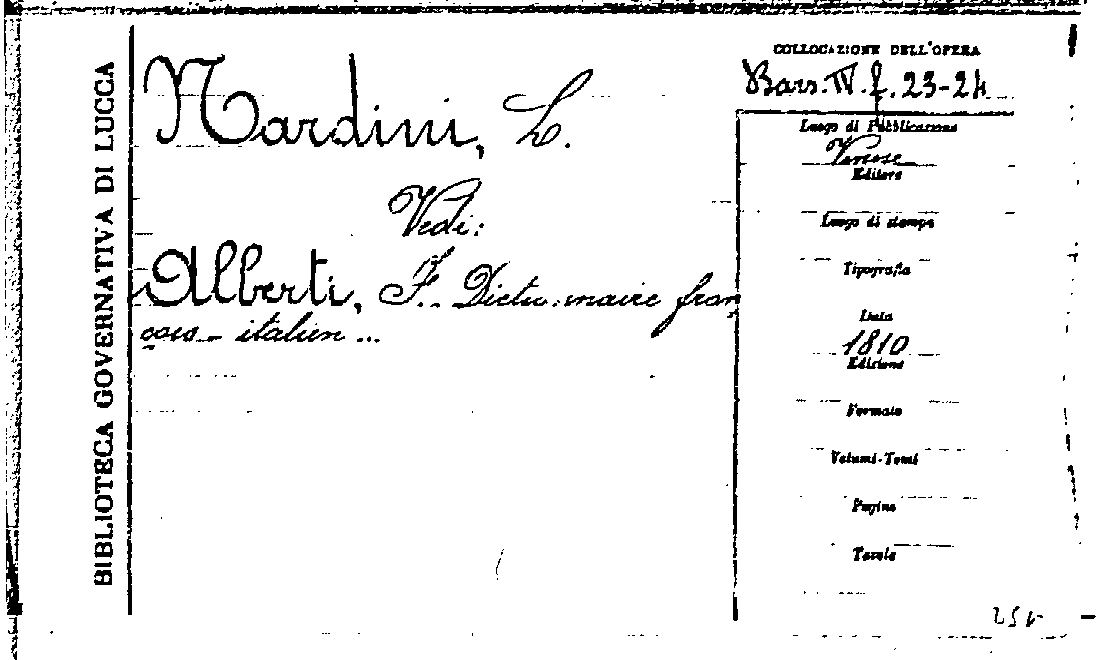 BIBLIOTECA GOVERNATIVA DI LUCCA
Nardini, L.
Vedi:
Alberti, F. Dictionnaire fran
çois - italien ...
COLLOCAZIONE DELL'OPERA
Bars. IV. f. 23-24
Luogo di Pubblicazione
Editore
Luogo di stampa
Tipografia
Data
1810
Edizione
Formato
Volumi-Tomi
Pagine
Tavole